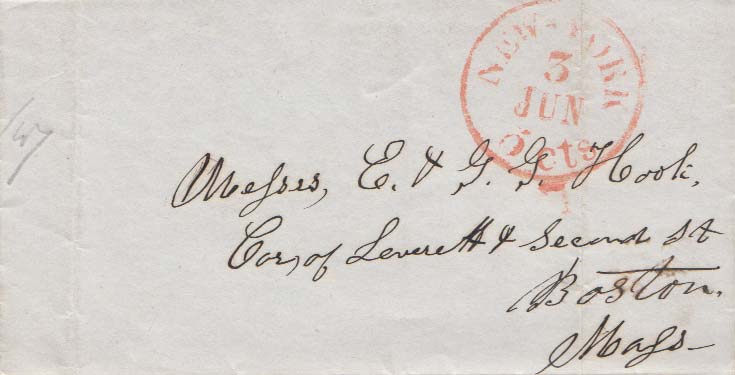 NEW-YORK
3
JUN
5 cts
Messrs, E. & G. G. Hook,
Cor, of Leverett & Second St
Boston,
Mass-